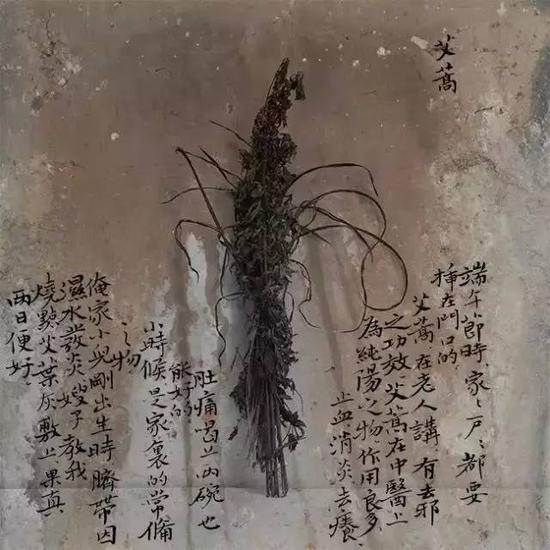 艾蒿
端午節時家〻戶〻都要
種在門口的
艾蒿在老人講有去邪
之功效艾蒿在中醫上
為純陽之物作用良多
止血消炎去癢、
肚痛喝上兩碗也
能好的
小時候是家裏的常備
之物
俺家小兒剛出生時臍帶因
濕水發炎嫂子教我
燒點艾葉灰敷上果真
兩日便好